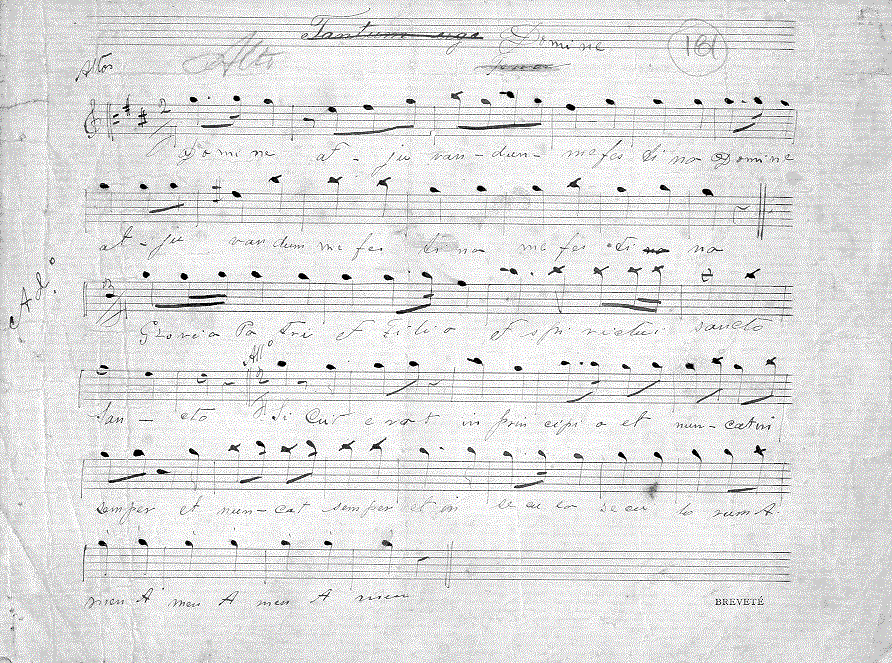 Tantum ergo Domine 161
Alto
Altos
Domine at - ju van - dun - me fes ti na Domine
at - ju van dum me fes ti na me fes ti na na
Ad.o
Gloria Pa tri et Filio et spi rictui sancto
All.o
San - cto Si cut erat in prin cipi o et nun - catin
semper et nun - cat semper et in se cu la se cu lo rum A -
men A men A men A men
BREVETÉ